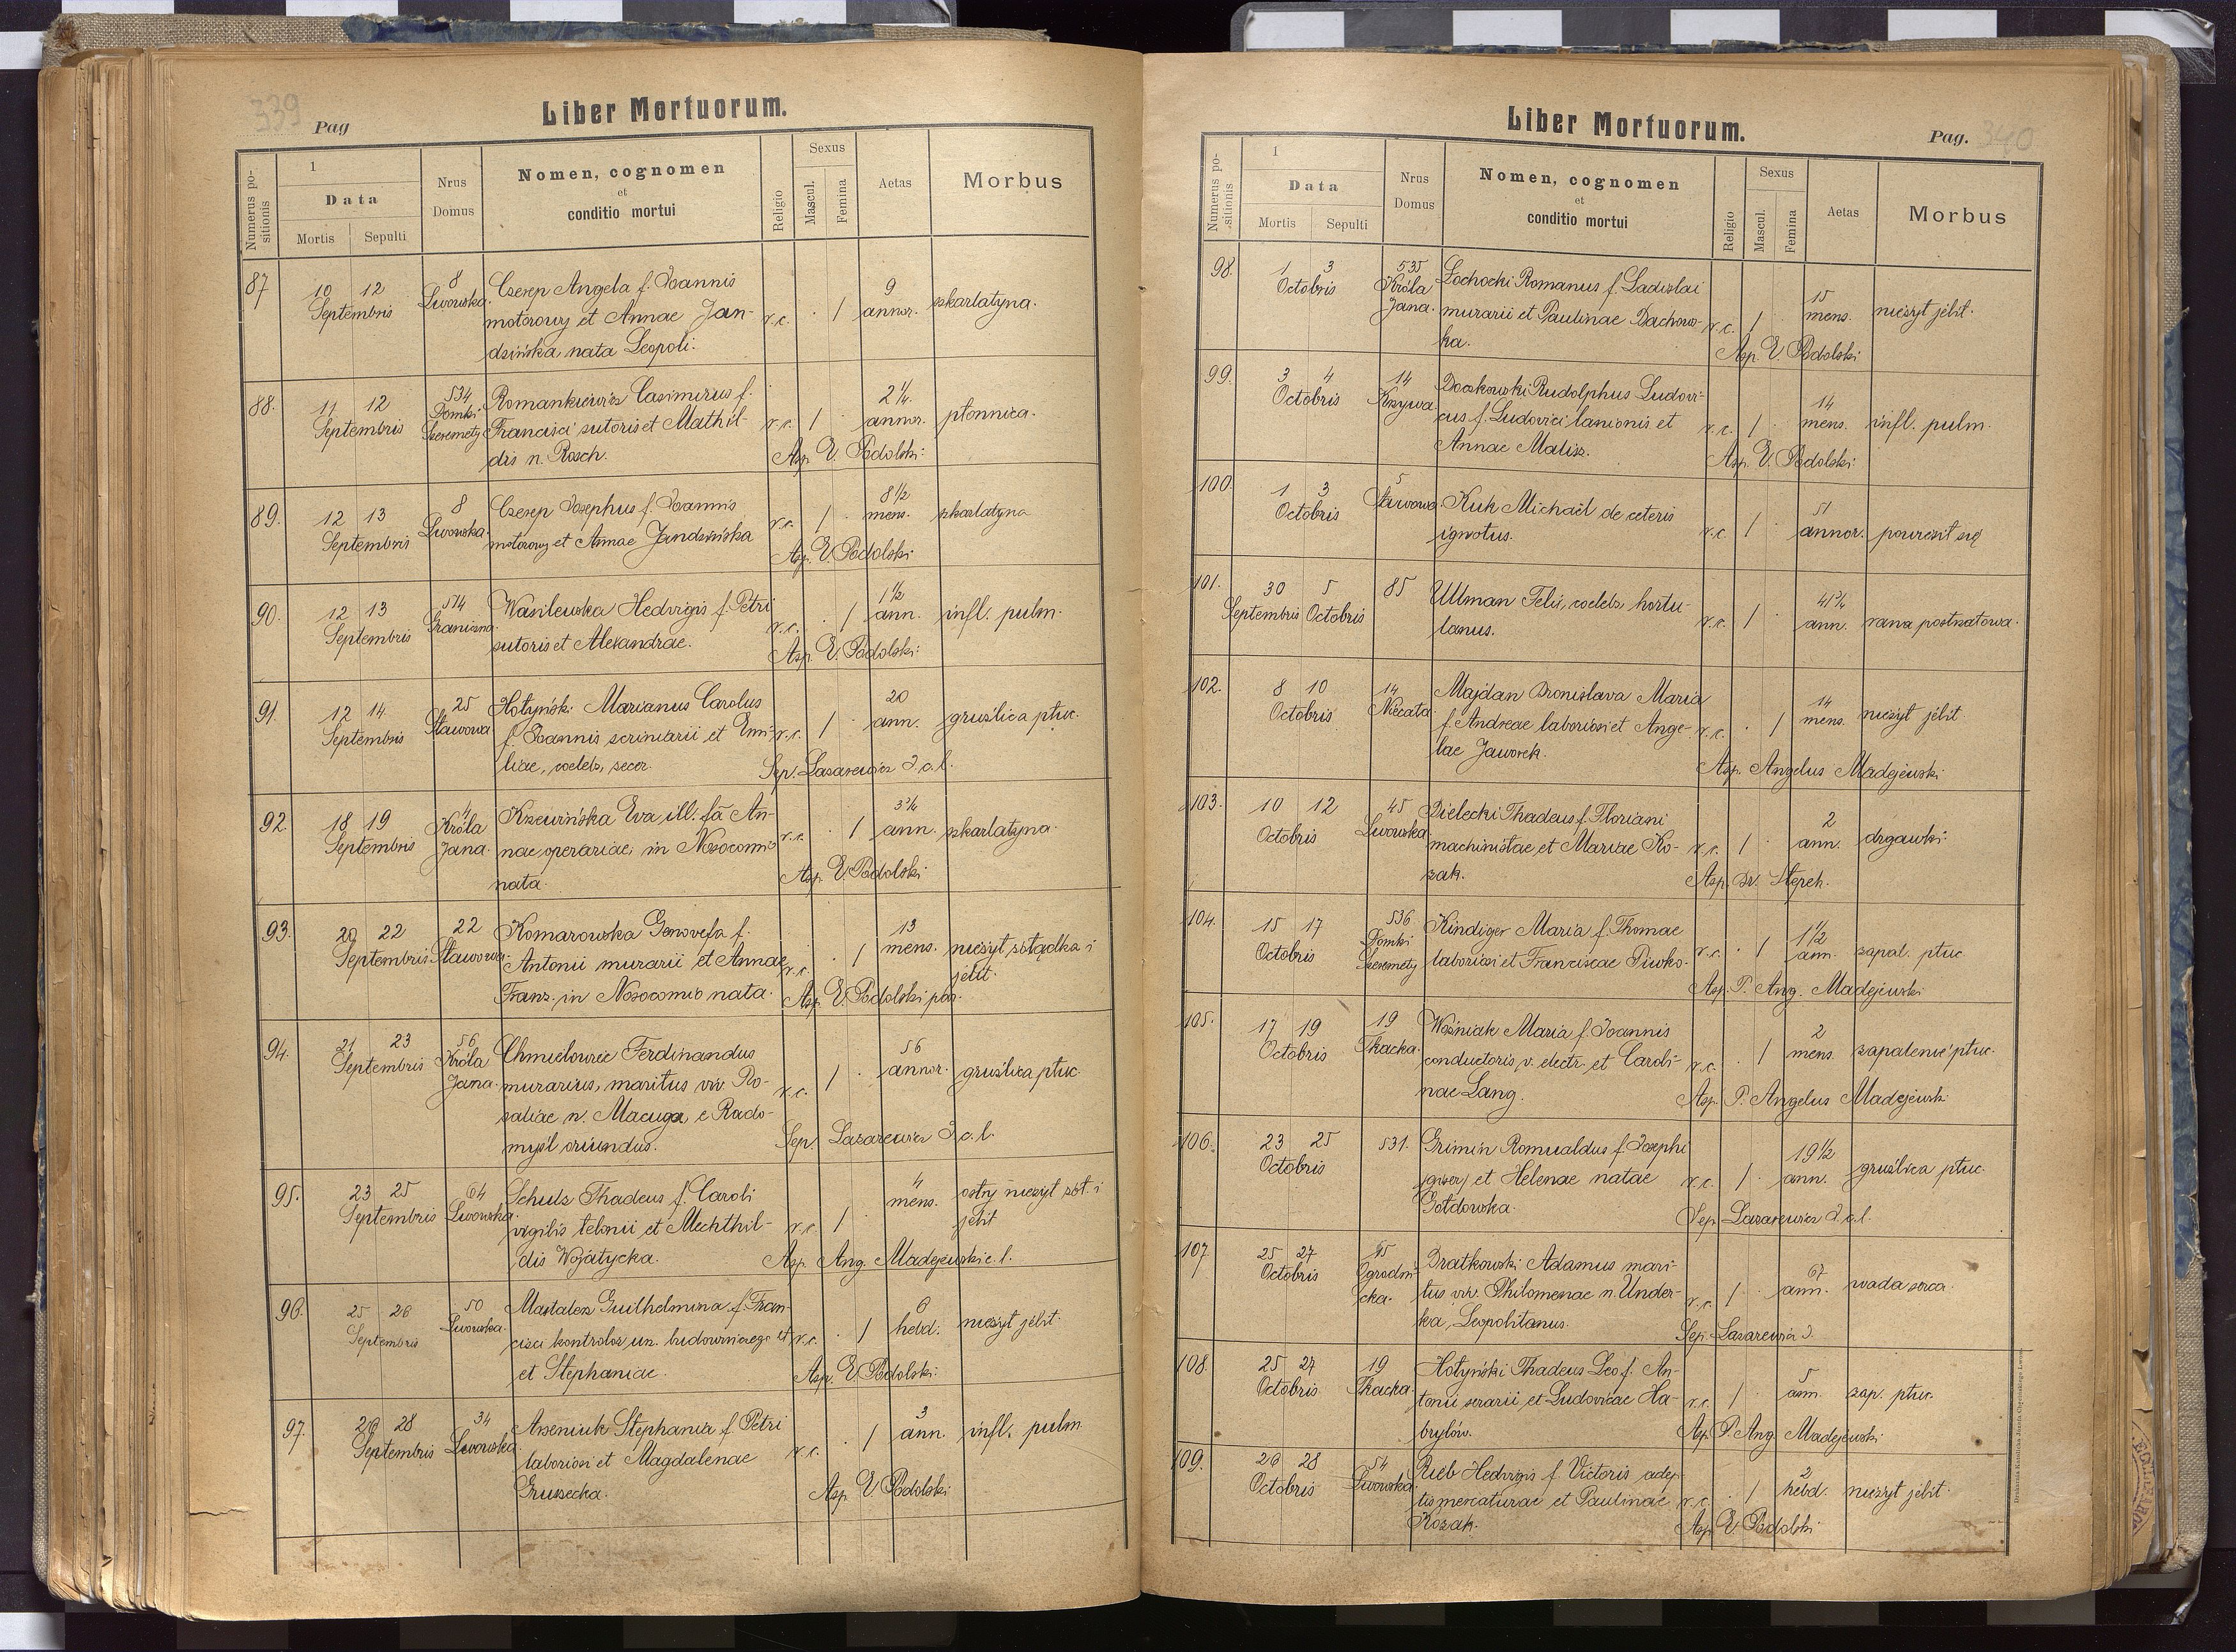 339
Pag
Liber Mortuorum.
Numerus po-
sitionis
1
Data
Mortis
Sepulti
Nrus
Domus
Nomen, cognomen
et
conditio mortui
Religio
Sexus
Mascul.
Femina
Aetas
Morbus
87
10 12
Septembris
8
Lwowska.
Czerep Angela f. Joannis
motorowy et Annae Jan-
dzińska nata Leopoli.
r.c. · /
9
annor.
szkarlatyna.
88.
11 12
Septembris
534
Domki
Szeremety
Romankiewicz Casimirus f.
Francisci sutoris et Mathil-
dis n. Rosch.
r.c. / ·
2 1/4.
annor.
płonnica.
Asp. V. Podolski.
89.
12 13
Septembris
8
Lwowska.
Czerep Josephus f. Joannis
motorowy et Annae Jandzińska
r.c. / ·
8 1/2
mens.
szkarlatyna
Asp. V. Podolski.
90.
12 13
Septembris
514
Graniczna.
Wasilewska Hedvigis f. Petri
sutoris et Alexandrae.
r.c. · /
1 1/2
ann.
infl. pulm.
Asp. V. Podolski.
91.
12 14
Septembris
25
Stawowa
Hołyński Marianus Carolus
f. Joannis scriniarii et Emi-
liae, coelebs, secer.
r.c. / ·
20
ann.
gruźlica płuc.
Sep. Lazarewicz d.c.l.
92.
18 19
Septembris
4
Króla
Jana.
Krzewińska Eva ill. fa An-
nae operariae, in Nosocomio
nata.
r.c. · /
3 1/4
ann.
szkarlatyna.
Asp. V. Podolski
93.
20 22
Septembris
22
Stawowa.
Komarowska Genovefa f.
Antonii murarii et Annae
Franz. in Nosocomio nata.
r.c. · /
13
mens.
nieżyt żołądka i
jelit.
Asp. V. Podolski par.
94.
21 23
Septembris
56
Króla
Jana.
Chmielowiec Ferdinandus
murarius, maritus viv. Ro-
saliae n. Macuga, e Rado-
myśl oriundus.
r.c. / ·
56
annor.
gruźlica płuc.
Sep. Lazarewicz d.c.l.
95.
23 25
Septembris
64
Lwowska.
Schulz Thadeus f. Caroli
vigilis telonii et Mechthil-
dis Wojatycka.
r.c. /
4
mens.
ostry nieżyt żoł. i
jelit
Asp. Ang. Madejewski c.l.
96.
25 26
Septembris
50
Lwowska.
Mastalerz Guilhelmina f. Fran-
cisci kontrolor urz. budowniczego et
et Stephaniae.
r.c. · /
6
hebd.
nieżyt jelit.
Asp. V. Podolski.
97.
26 28
Septembris
34
Lwowska.
Arseniuk Stephania f. Petri
laboriosi et Magdalenae
Gruszecka.
r.c. · /
3
ann.
infl. pulm
Asp. V. Podolski
Liber Mortuorum.
Pag. 340
Numerus po-
sitionis
1
Data
Mortis
Sepulti
Nrus
Domus
Nomen, cognomen
et
conditio mortui
Religio
Sexus
Mascul.
Femina
Aetas
Morbus
98.
1 3
Octobris
535
Króla
Jana.
Żochocki Romanus f. Ladislai
murarii et Paulinae Dachow-
ka.
r.c. /
15
mens.
nieżyt jelit.
Asp. V. Podolski
99.
3 4
Octobris
14
Krzywa.
Doczkowski Rudolphus Ludovi-
cus f. Ludovici lanionis et
Annae Malisz.
r.c. / ·
14
mens.
infl. pulm.
Asp. V. Podolski.
100.
1 3
Octobris
5
Stawowa.
Kuk Michaël de ceteris
ignotus.
r.c. / ·
51
annor.
powiesił się
101.
30 5
Septembris Octobris
85
Ullman Felix, coelebs, hortu-
lanus.
r.c. / ·
41 3/4
ann.
rana postrzałowa.
102.
8 10
Octobris
14
Kiecata
Majdan Bronislava Maria
f. Andreae laboriosi et Ange-
lae Jaworek.
r.c. · /
14
mens.
nieżyt jelit
Asp. Angelus Madejewski
103.
10 12
Octobris
45
Lwowska
Bielecki Thadeus f. Floriani
machinistae et Mariae Ko-
zak.
r.c. / ·
2
ann.
drgawki.
Asp. Br. Stepek.
104.
15 17
Octobris
536
Domki
Szeremety
Kindiger Maria f. Thomae
laboriosi et Franciscae Piwko.
r.c. · /
1 1/2
ann.
zapal. płuc
Asp. P. Ang. Madejewski
105.
17 19
Octobris
19
Tkacka.
Woźniak Maria f. Joannis
conductoris v. electr. et Caroli-
nae Lang.
r.c. · /
2
mens.
zapalenie płuc.
Asp. P. Angelus Madejewski
106.
23 25
Octobris
531.
Grimin Romualdus f. Josephi
(giser) et Helenae natae
Gołdowska.
r.c. / ·
19 1/2
ann.
gruźlica płuc.
Sep. Lazarewicz d.c.l.
107
25 27
Octobris
65
Ogrodni-
cka.
Bratkowski Adamus mari-
tus viv. Philomenae n. Under-
ka, Leopolitanus.
r.c. / ·
67
ann.
wada serca.
Sep. Lazarewicz d.
108.
25 27
Octobris
19
Tkacka.
Hołyński Thadeus Leo f. An-
tonii serarii et Ludovicae Ha-
brylów.
r.c. / ·
5
ann.
zap. płuc
Asp. P. Ang. Madejewski.
109.
26 28
Octobris
54
Lwowska
Rieb Hedvigis f. Victoris adep-
tis mercaturae et Paulinae
Kozak.
r.c. · /
2
hebd.
nieżyt jelit.
Asp. V. Podolski